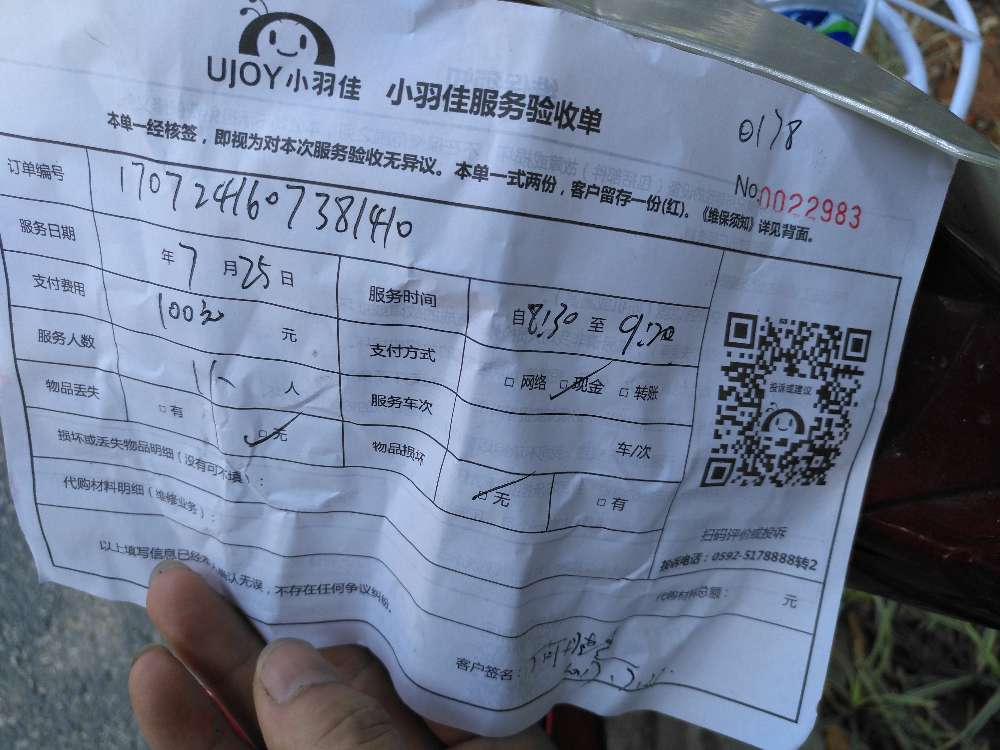 UJOY小羽佳 小羽佳服务验收单
0178
本单一经核签，即视为对本次服务验收无异议。本单一式两份，客户留存一份(红)。《维保须知》详见背面。
No.0022983
订单编号 1707241607381410
服务日期 年7月25日 服务时间 自8:30至9:20
支付费用 100元 元 支付方式 □网络 □现金 □转账
服务人数 1 人 服务车次 车/次
物品丢失 □有 □无 物品损坏 □无 □有
投诉或建议
损坏或丢失物品明细（没有可不填）：
扫码评价或投诉
投诉电话：0592-5178888转2
代购材料明细（维修业务）：
代购材料总额： 元
以上填写信息已经 确认无误，不存在任何争议纠纷。
客户签名：